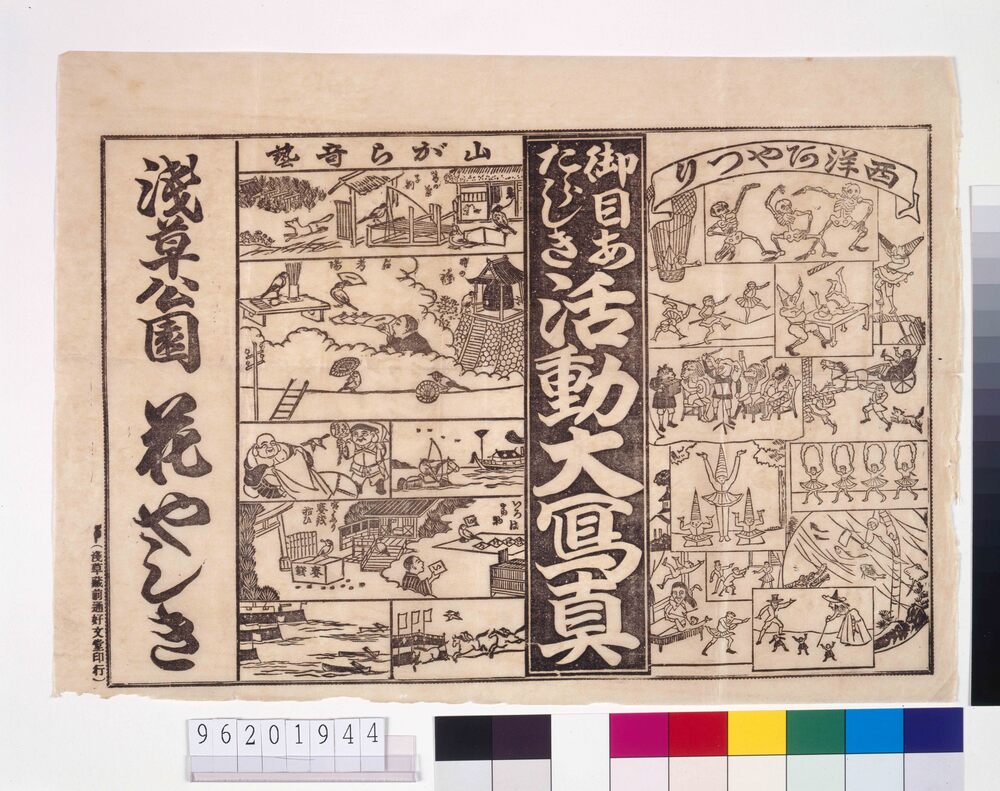 西洋あやつり
御目あ
たらしき活動大写真
山がら奇藝
淺草公園 花やしき
(淺草藏前通好文堂印行)
96201944